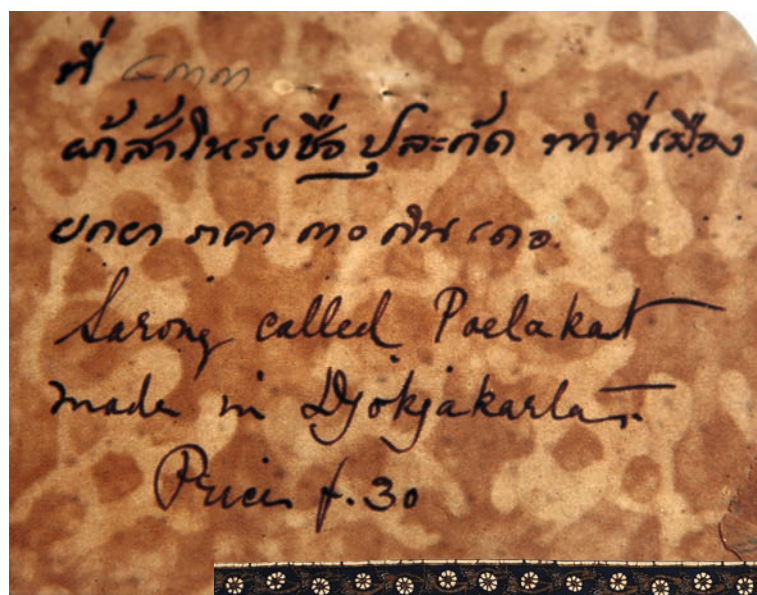 ที่ ๔๓๓
ผ้าส้าโหร่งชื่อ ปูละกัด ทำที่เมือง
ยกยา ราคา ๓๐ กิน เดอ
Sarong called Poelakat
made in Djokjakarta.
Price f. 30